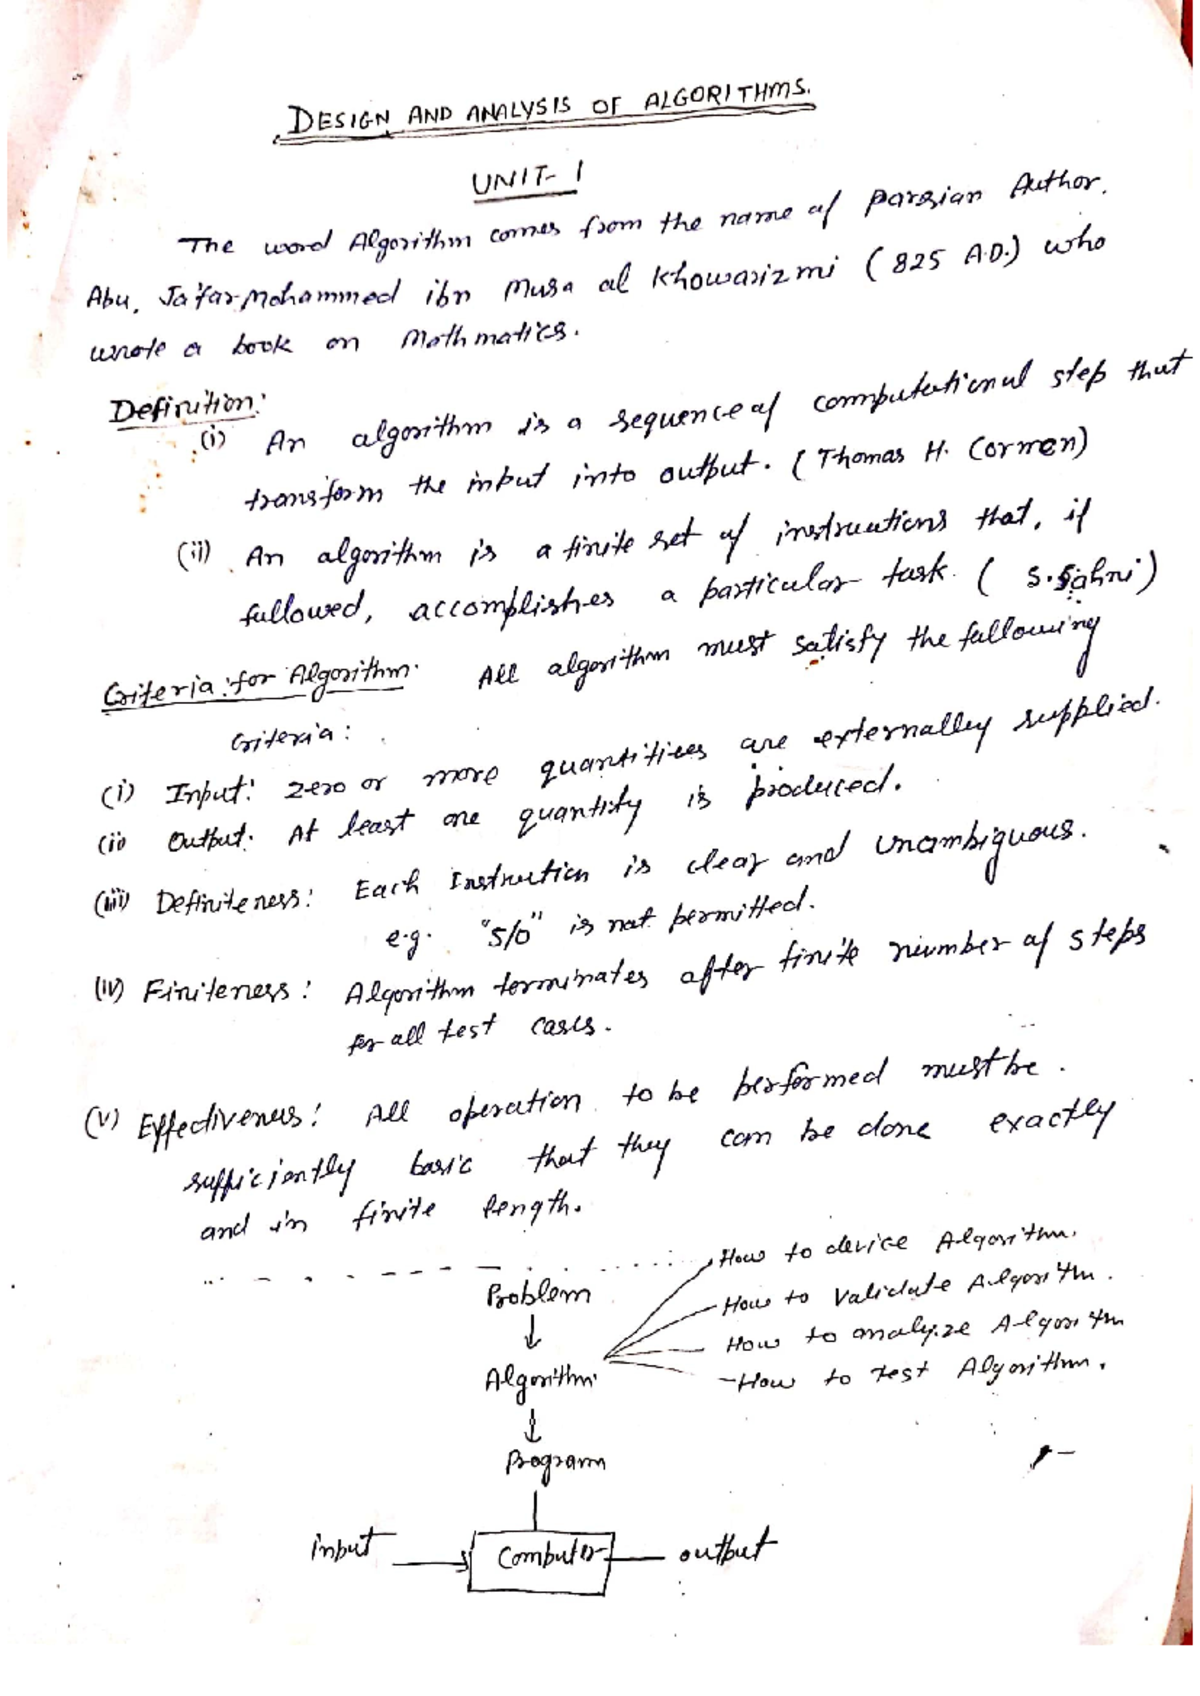 DESIGN AND ANALYSIS OF ALGORITHMS.
UNIT-1
The word Algorithm comes from the name of Parsian Author.
Abu, Ja'far Mohammed ibn Musa al Khowarizmi (825 A.D.) who
wrote a book on Mathmatics.
Definition:
(i) An algorithm is a sequence of computational step that
transform the input into output. (Thomas H. Cormen)
(ii) An algorithm is a finite set of instructions that, if
followed, accomplishes a particular task. (S. Sahni)
Criteria for Algorithm: All algorithm must satisfy the following
Criteria:
(i) Input: Zero or more quantitices are externally supplied.
(ii) Output: At least one quantity is produced.
(iii) Definiteness: Each Instruction is clear and unambiguous.
e.g. "5/0" is not permitted.
(iv) Finiteness: Algorithm terminates after finite number of steps
for all test cases.
(v) Effectiveness: All operation to be performed must be.
sufficiently basic that they can be done exactly
and in finite length.
Problem
How to device Algorithm.
How to validate Algorithm.
How to analyze Algorithm
How to test Algorithm.
Algorithm
Program
input
Computer
output